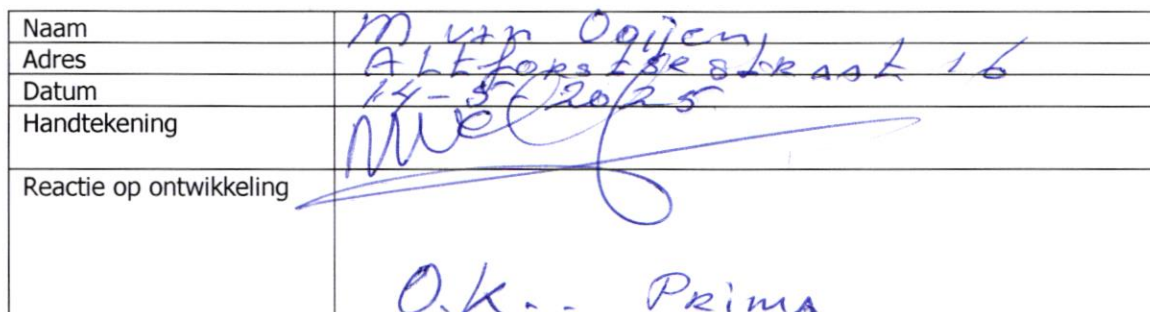 Naam M van Ooijen
Adres Altforsterstraat 16
Datum 14-5-2025
Handtekening
Reactie op ontwikkeling
O.K.. Prima